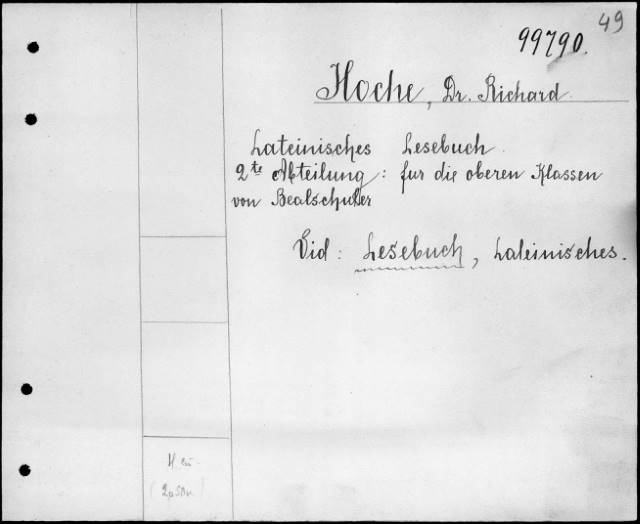 49
99790.
Hoche, Dr. Richard
Lateinisches Lesebuch
2te Abteilung: fur die oberen Klassen
von Bealschuler
Vid: Lesebuch, Lateinisches.